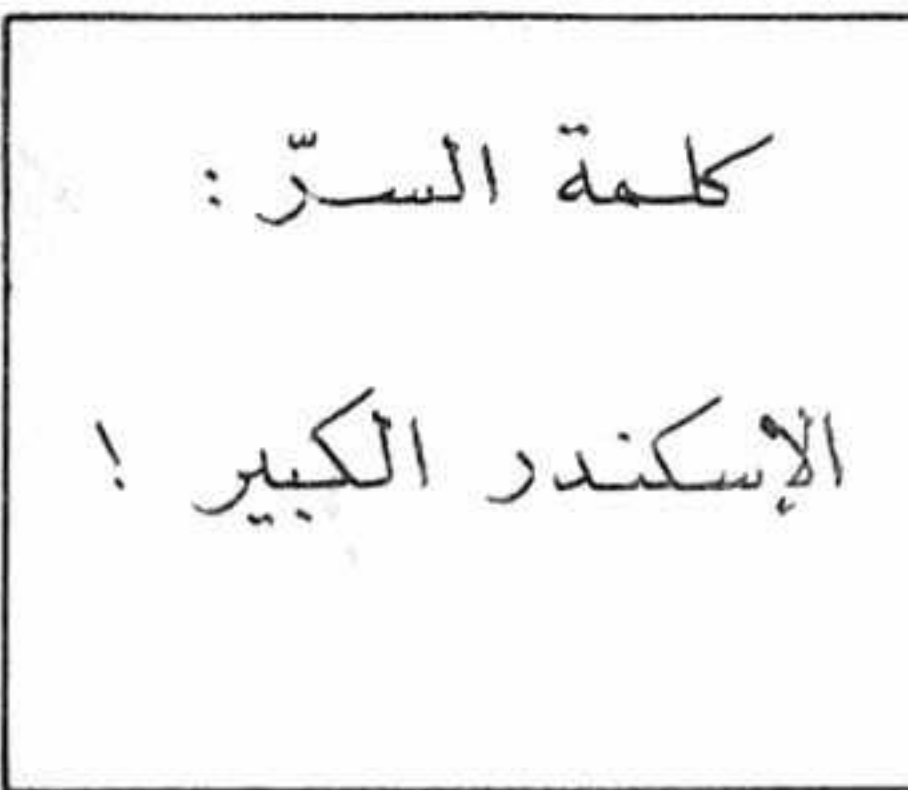 كلمة السرّ :
الإسكندر الكبير !